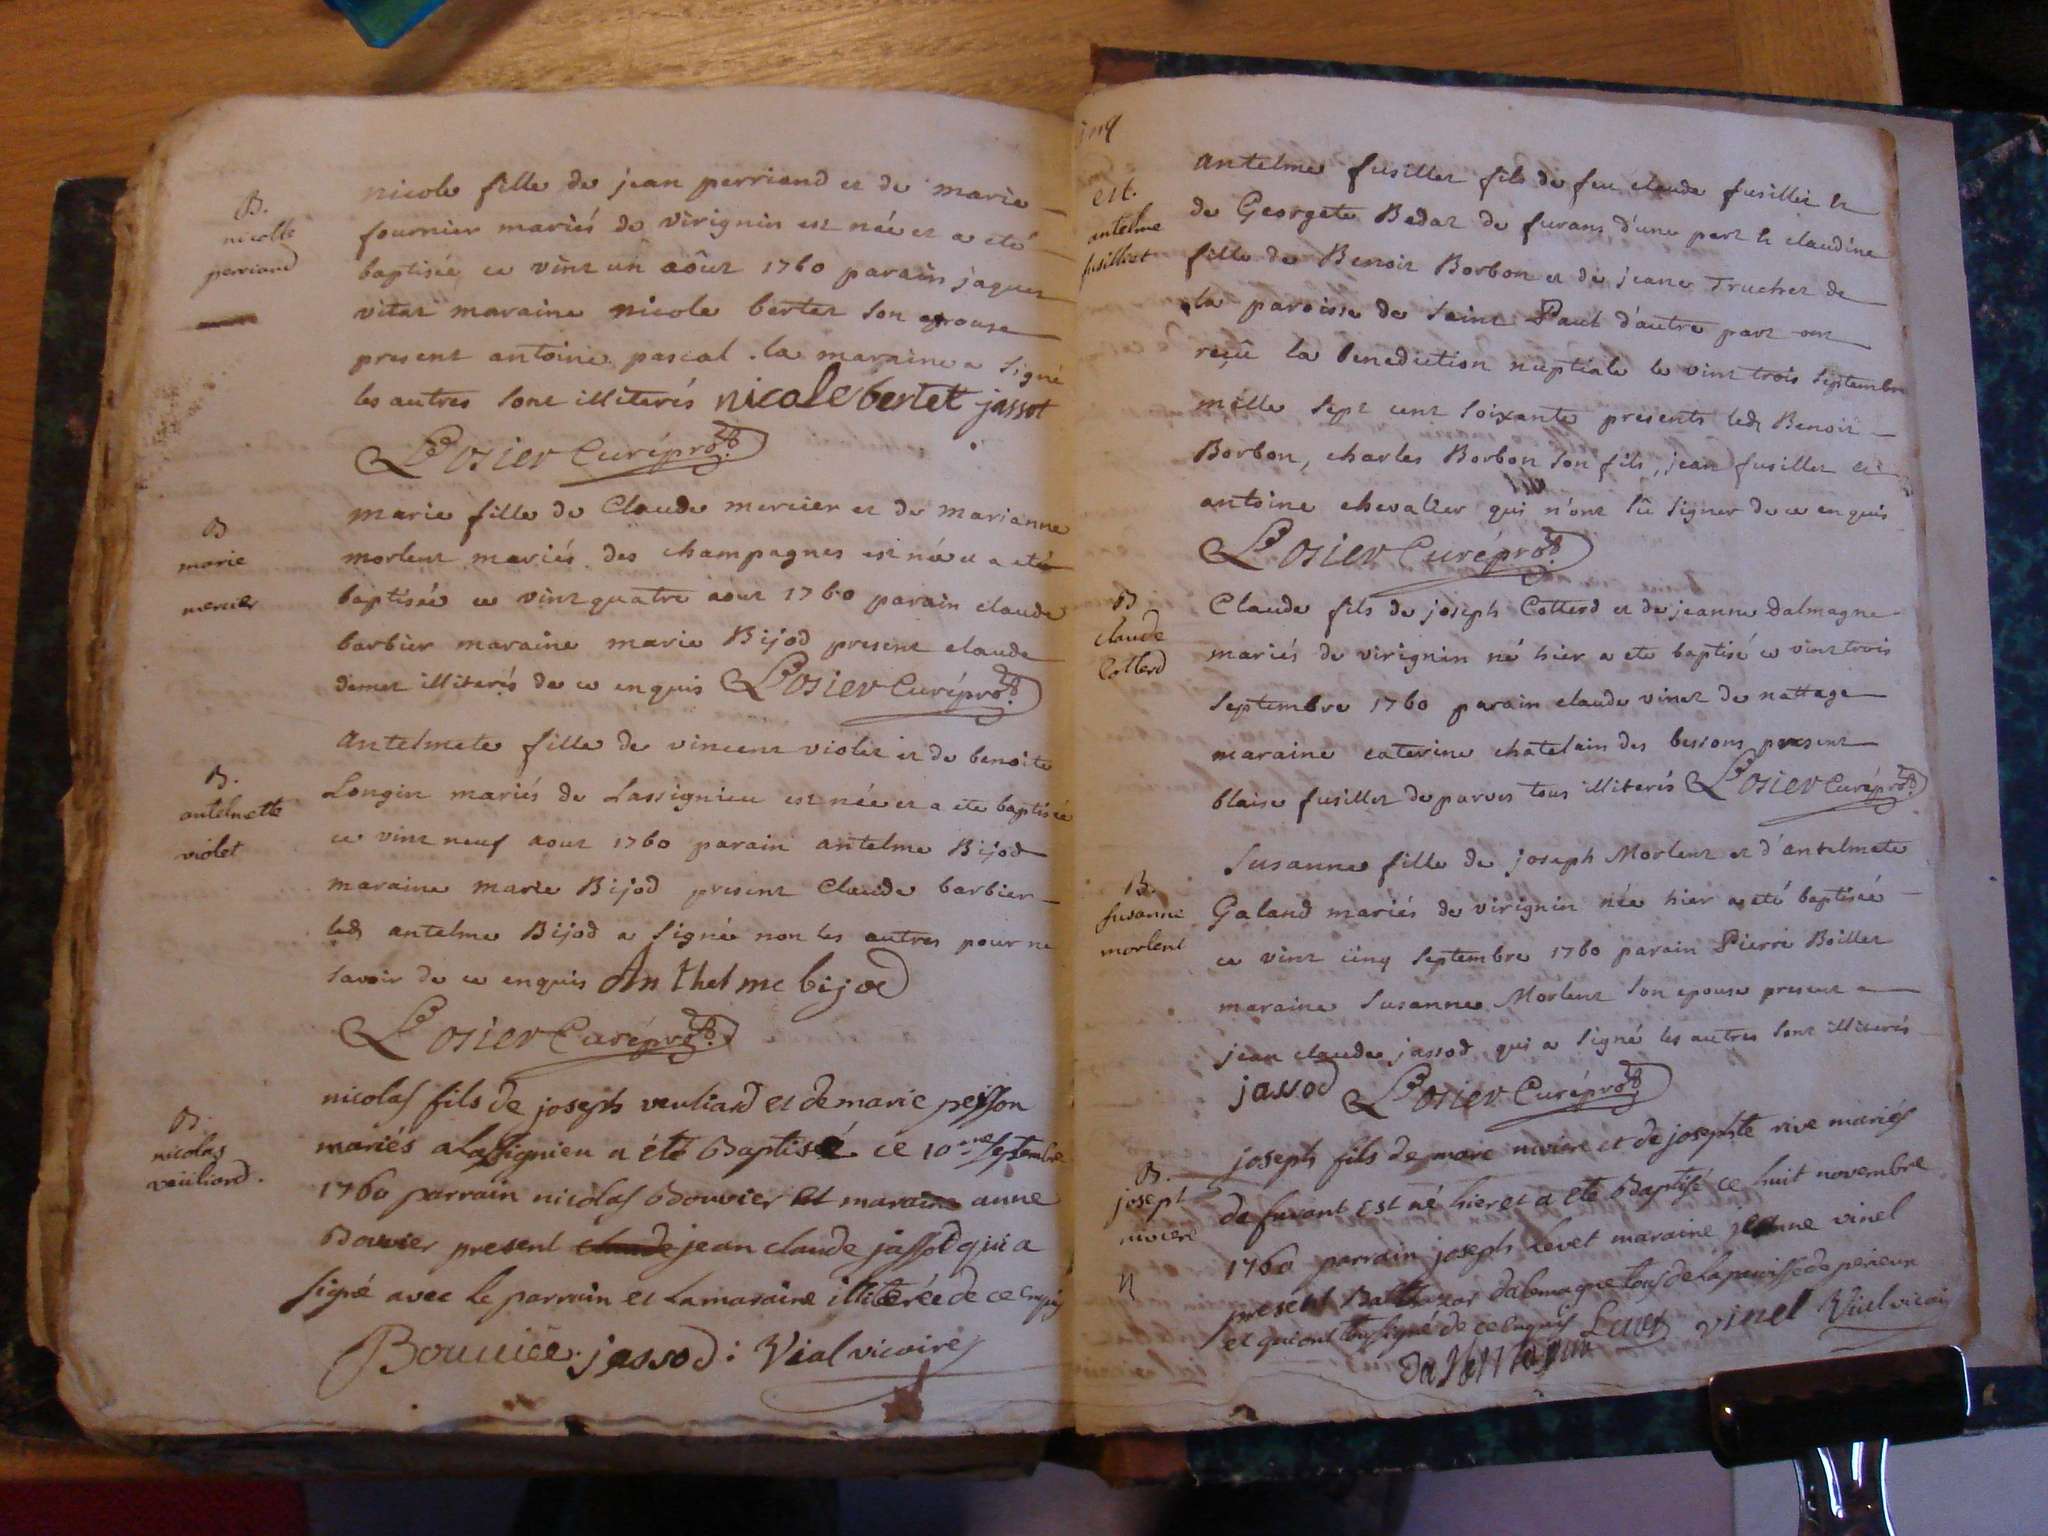 B.
nicolle
perriand
nicole fille de jean perriand et de marie
fournier mariés de virignin est née et a eté
baptisée ce vint un aôut 1760 parain jaques
vitat maraine nicole bertet son epouse
present antoine pascal . la maraine a signé
les autres sont illiterés nicole bertet jassot
L'Osier Curé
B
marie
mercier
marie fille de Claude mercier et de marianne
morlent mariés des champagnes est née et a eté
baptisée ce vint quatre aout 1760 parain claude
barbier maraine marie Bijod present claude
demet illiterés de ce enquis L'Osier Curé
B.
antelmette
violet
antelmete fille de vincent violet et de benoite
Longin mariés de Lassignieu est née et a ete baptisée
ce vint neuf aout 1760 parain antelme Bijod
maraine marie Bijod present Claude barbier
led antelme Bijod a signé non les autres pour ne
savoir de ce enquis Anthelme bijod
L'Osier Curé
B.
nicolas
veüliard.
nicolas fils de joseph veuliard et de marie peysson
mariés a Lassignieu a été Baptisé ce 10me septembre
1760 parrain nicolas Bouvier et maraine anne
Bouvier present claude jean claude jassod qui a
signé avec le parrain et la maraine illiterée de ce enquis
Bouuier jassod : Vial vicaire
est.
antelme
fusillet
antelme fusillet fils de feu claude fusillet et
de Georgete Bedat de furans d'une part et claudine
fille de Benoit Borbon et de jeane Truchet de
la paroisse de saint Paul d'autre part ont
reçû la benediction nuptiale le vint trois septembre
mille sept cent soixante presents led Benoit
Borbon, charles Borbon son fils, jean fusillet et
antoine chevalier qui n'ont sû signer de ce enquis
L'Osier Curé
B
claude
Cotterd
Claude fils de joseph Cotterd et de jeanne Dalmagne
mariés de virignin né hier a ete baptisé ce vint trois
septembre 1760 parain claude vinet de nattage
maraine caterine chatelain des bessons present
blaise fusillet de parves tous illiterés L'Osier Curé
B.
susanne
morlent
Susanne fille de joseph Morlent et d'antelmete
Galand mariés de virignin née hier a eté baptisée
ce vint cinq septembre 1760 parain Pierre Boillet
maraine susanne Morlent son epouse present
jean claude jassod qui a signé les autres sont illiterés
jassod L'Osier Curé
B.
josept
niviere
joseph fils de marc niviere et de josephte rive mariés
de furant est né hier et a ete Baptisé ce huit novembre
1760 parrain joseph Levet maraine jeanne vinel
present Balthazar dalemagne tous de la paroisse de perieux
et qui ont tous signé de ce enquis Levet vinel Vial vicaire